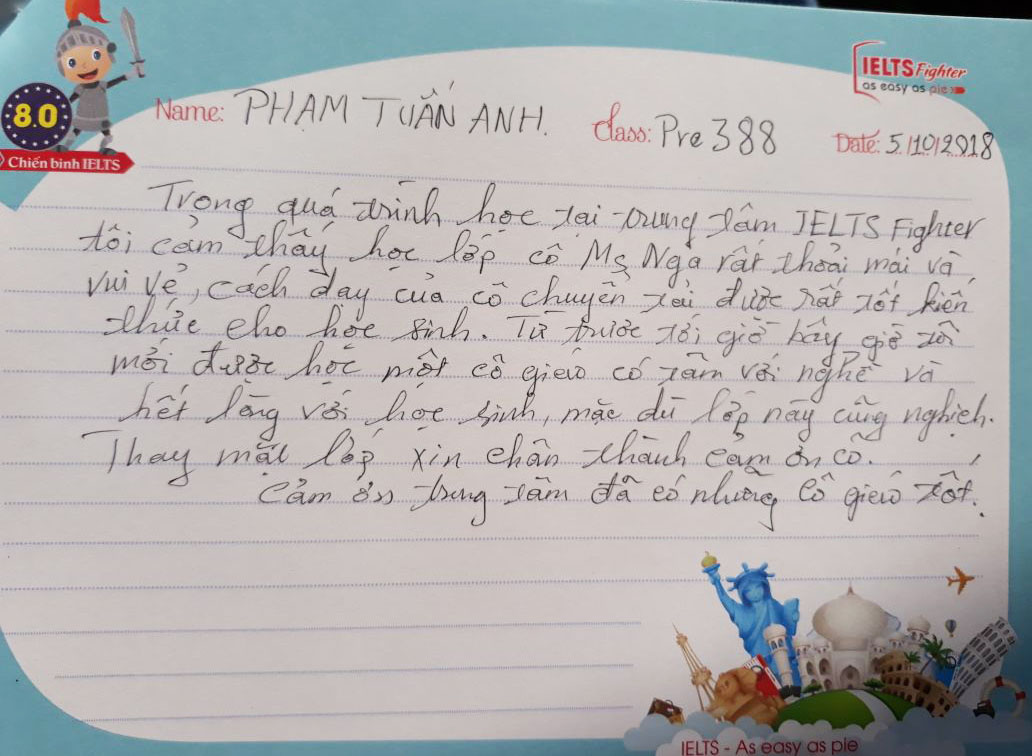 IELTS Fighter
as easy as pie
8.0
Chiến binh IELTS
Name: PHẠM TUẤN ANH. Class: Pre 388 Date: 5/10/2018
Trong quá trình học tại trung tâm IELTS Fighter
tôi cảm thấy học lớp cô Ms Nga rất thoải mái và
vui vẻ, cách dạy của cô chuyền tải được rất tốt kiến
thức cho học sinh. Từ trước tới giờ bây giờ tôi
mới được học một cô giáo có tâm với nghề và
hết lòng với học sinh, mặc dù lớp này cũng nghịch.
Thay mặt lớp xin chân thành cảm ơn cô.
Cảm ơn trung tâm đã có những cô giáo tốt.
IELTS - As easy as pie